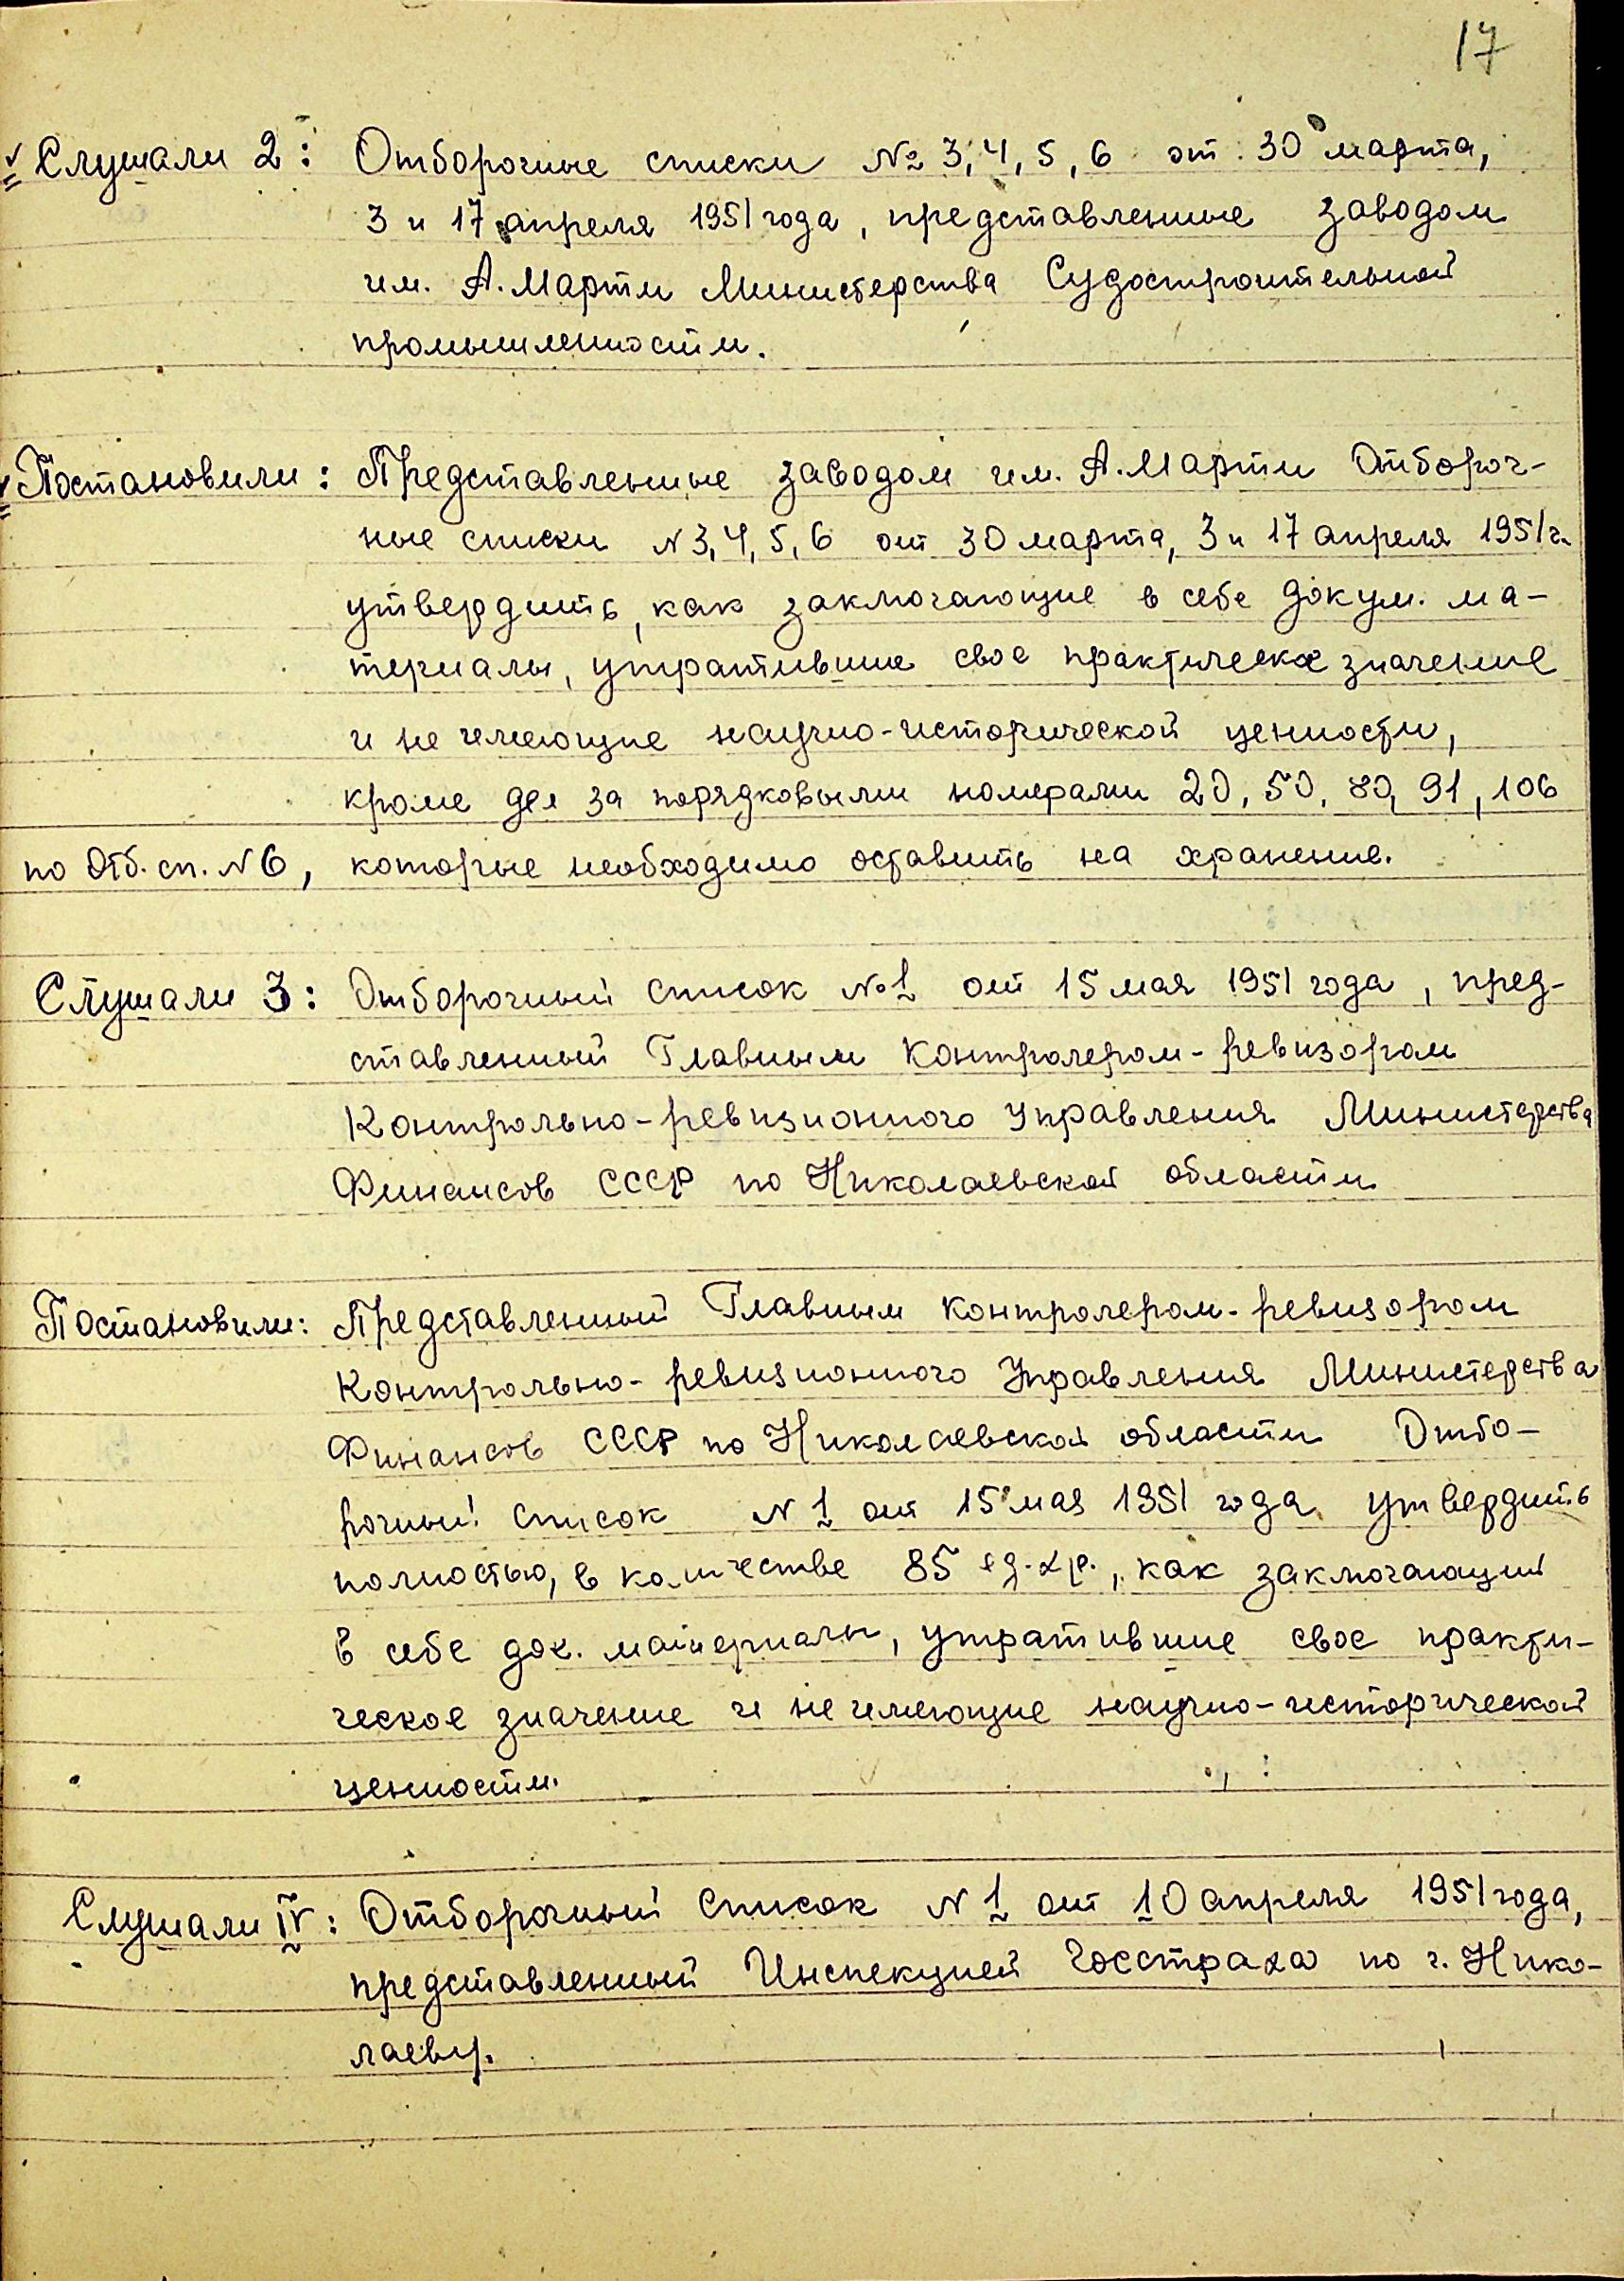 17
Слушали 2: Отборочные списки № 3, 4, 5, 6 от 30 марта,
3 и 17 апреля 1951 года, представленные заводом
им. А. Марти Министерства Судостроительной
промышленности.
Постановили: Представленные заводом им. А. Марти Отбороч-
ные списки N 3, 4, 5, 6 от 30 марта, 3 и 17 апреля 1951 г.
утвердить, как заключающие в себе докум. ма-
териалы, утратившие свое практическое значение
и не имеющие научно-исторической ценности,
кроме дел за порядковыми номерами 20, 50, 80, 91, 106
по Отб. сп. N 6, которые необходимо оставить на хранение.
Слушали 3: Отборочный список №1 от 15 мая 1951 года, пред-
ставленный Главным Контролером-ревизором
Контрольно-ревизионного Управления Министерства
Финансов СССР по Николаевской области
Постановили: Представленный Главным контролером-ревизором
Контрольно-ревизионного Управления Министерства
Финансов СССР по Николаевской области Отбо-
рочный список N 1 от 15 мая 1951 года утвердить
полностью, в количестве 85 ед. хр., как заключающий
в себе док. материалы, утратившие свое практи-
ческое значение и не имеющие научно-исторической
ценности.
Слушали IV: Отборочный список N 1 от 10 апреля 1951 года,
представленный Инспекцией Госстраха по г. Нико-
лаеву.